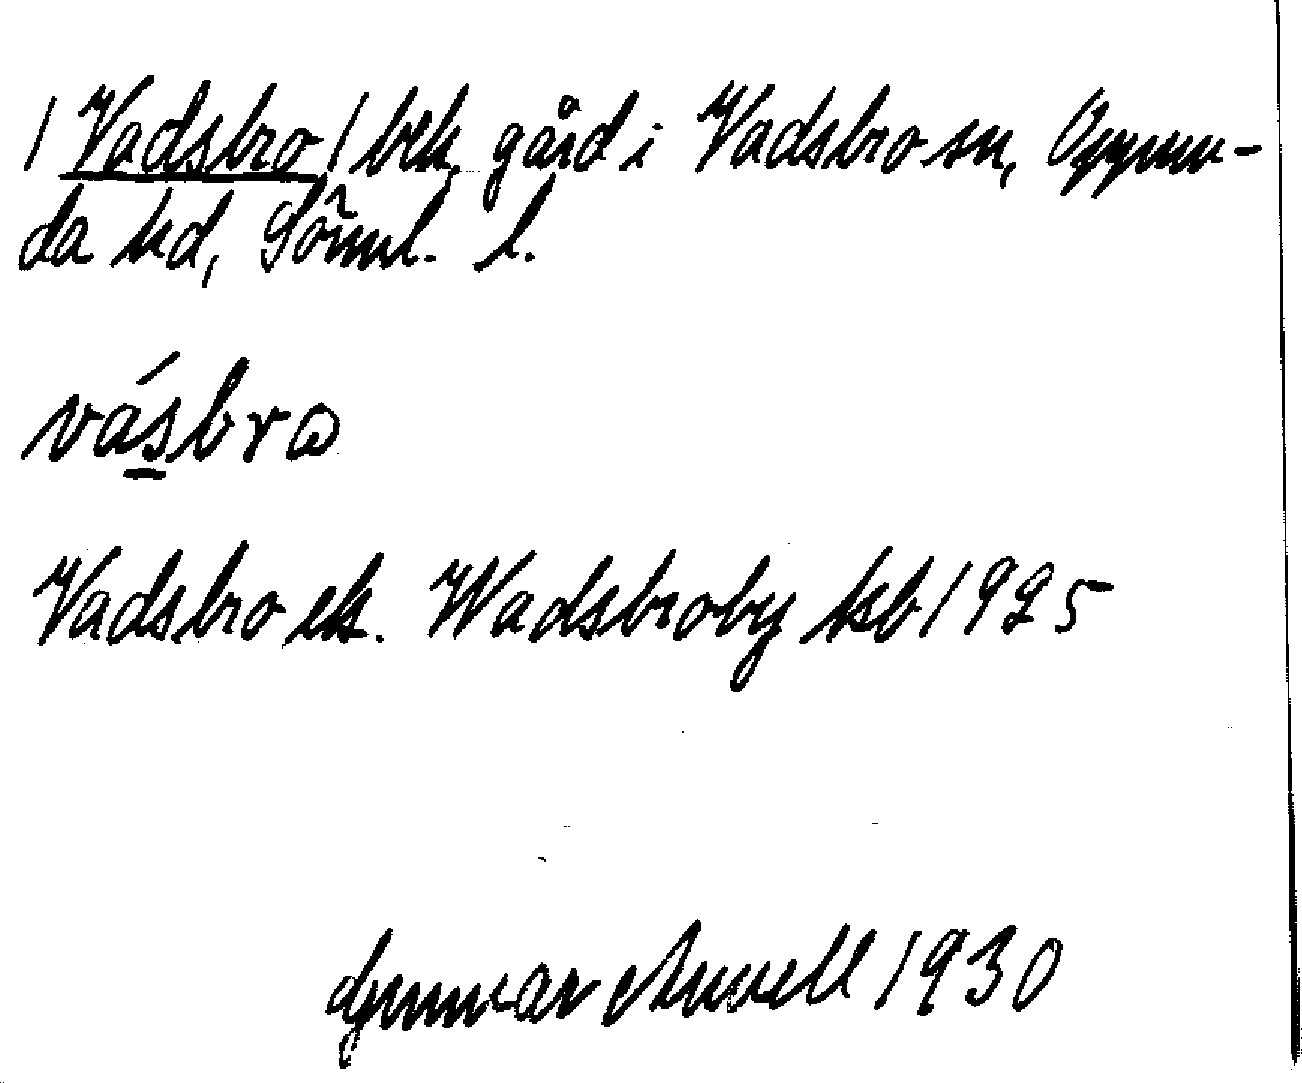 / Vadsbro / bek. gård i Vadsbro sn, Oppun-
da hd, Söml. l.
vásbro
Vadsbro ek. Wadsbroby kb 1925
Gunnar 1930